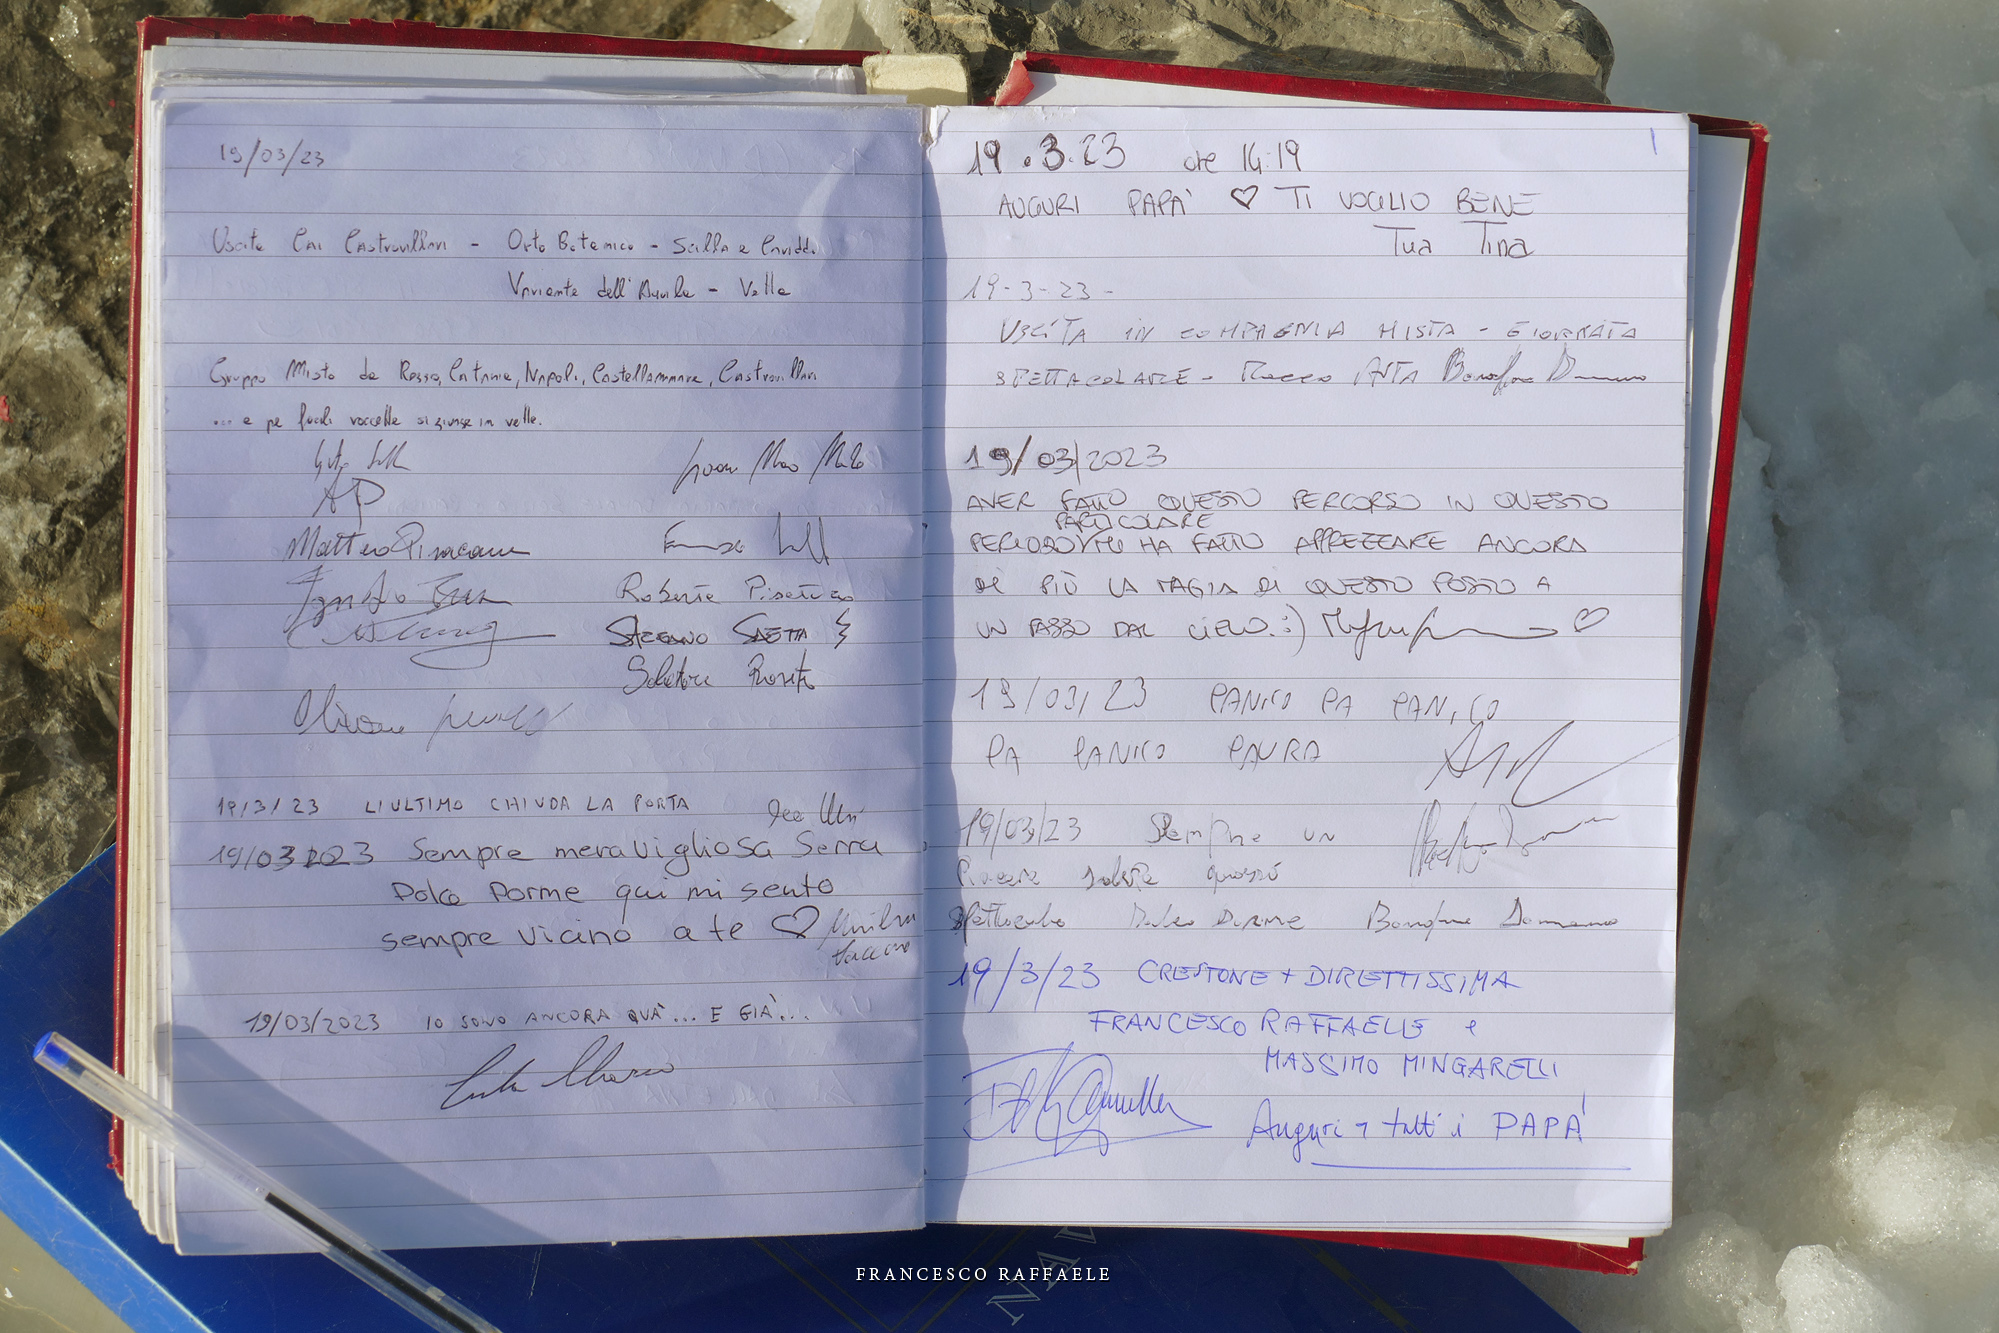 19/03/23
Uscita Cai Castrovillari - Orto Botanico - Scilla e Cariddi
Variante dell'Aquila - Vetta
Gruppo Misto da Rosso, Catania, Napoli, Castellammare, Castrovillari
... e pe locali voccette si giunse in vetta.
AP
Matteo Pisacane
Roberta
STEFANO SAETTA
Salvatore
19/3/23 L'ULTIMO CHIUDA LA PORTA
19/03 2023 Sempre meravigliosa Serra
Dolce Dorme qui mi sento
sempre vicino a te ♡
19/03/2023 IO SONO ANCORA QUA'... E GIÀ...
1
19.3.23 ore 14:19
AUGURI PAPA' ♡ TI VOGLIO BENE
Tua Tina
19-3-23 -
USCITA IN COMPAGNIA MISTA - GIORNATA
SPETTACOLARE - Rocco
19/03/2023
AVER FATTO QUESTO PERCORSO IN QUESTO
PARTICOLARE
PERIODO MI HA FATTO APPREZZARE ANCORA
DI PIÙ LA MAGIA DI QUESTO POSTO A
UN PASSO DAL CIELO. :) ♡
19/03/23 PANICO PA PANICO
PA PANICO PAURA
19/03/23 Sempre un
Piacere salire quassù
Spettacolo Dolce Dorme
19/3/23 CRESTONE + DIRETTISSIMA
FRANCESCO RAFFAELE e
MASSIMO MINGARELLI
Auguri a tutti i PAPA'
NAV
FRANCESCO RAFFAELE